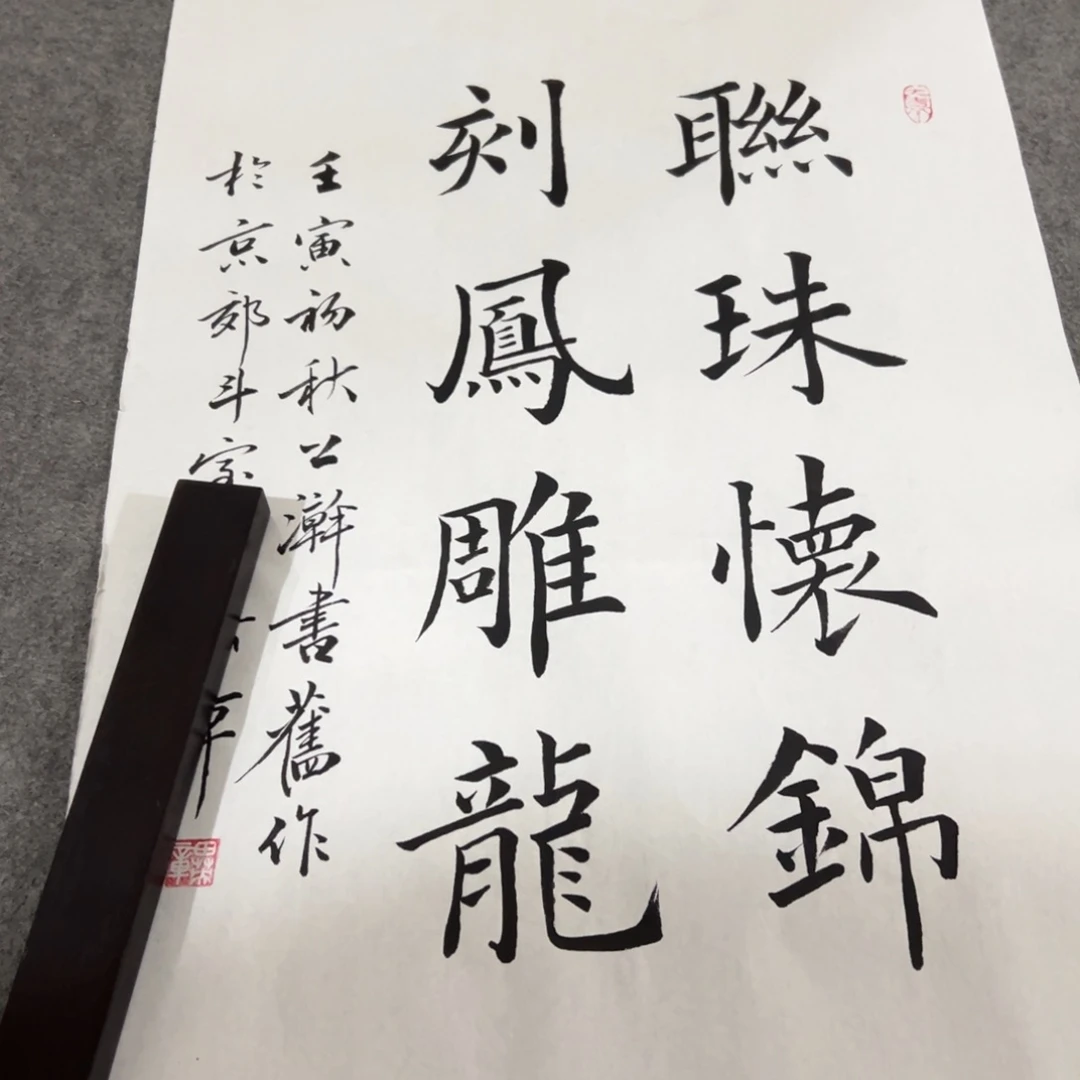 聯珠懷錦
刻鳳雕龍
壬寅初秋公瀚書舊作
於京郊斗室